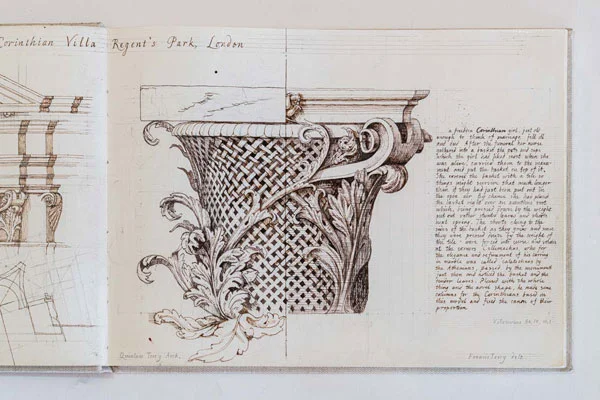 Corinthian Villa Regent's Park, London
a freeborn Corinthian girl, just old
enough to think of marriage, fell ill
and died. After the funeral her nurse
collected into a basket the pots and cups
which the girl had liked most when she
was alive, carried them to the monu-
ment and put the basket on top of it.
She covered the basket with a tile so
things might survive that much longer
than if they had just been put out in
the open air. By chance she had placed
the basket right over an acanthus root
which, being pressed down by the weight
put out rather stunted leaves and shoots
next spring. The shoots clung to the
sides of the basket as they grew and since
they were pressed down by the weight of
the tile, were forced into curves and volutes
at the corners. Callimachus, who for
the elegance and refinement of his carving
in marble was called catatechnos by
the Athenians, passed by the monument
just then and noticed the basket and the
tender leaves. Pleased with the whole
thing and the novel shape, he made some
columns for the Corinthians based on
this model and fixed the canon of their
proportion.
Vitruvius Bk IV,
Quinlan Terry Arch.
Francis Terry delt